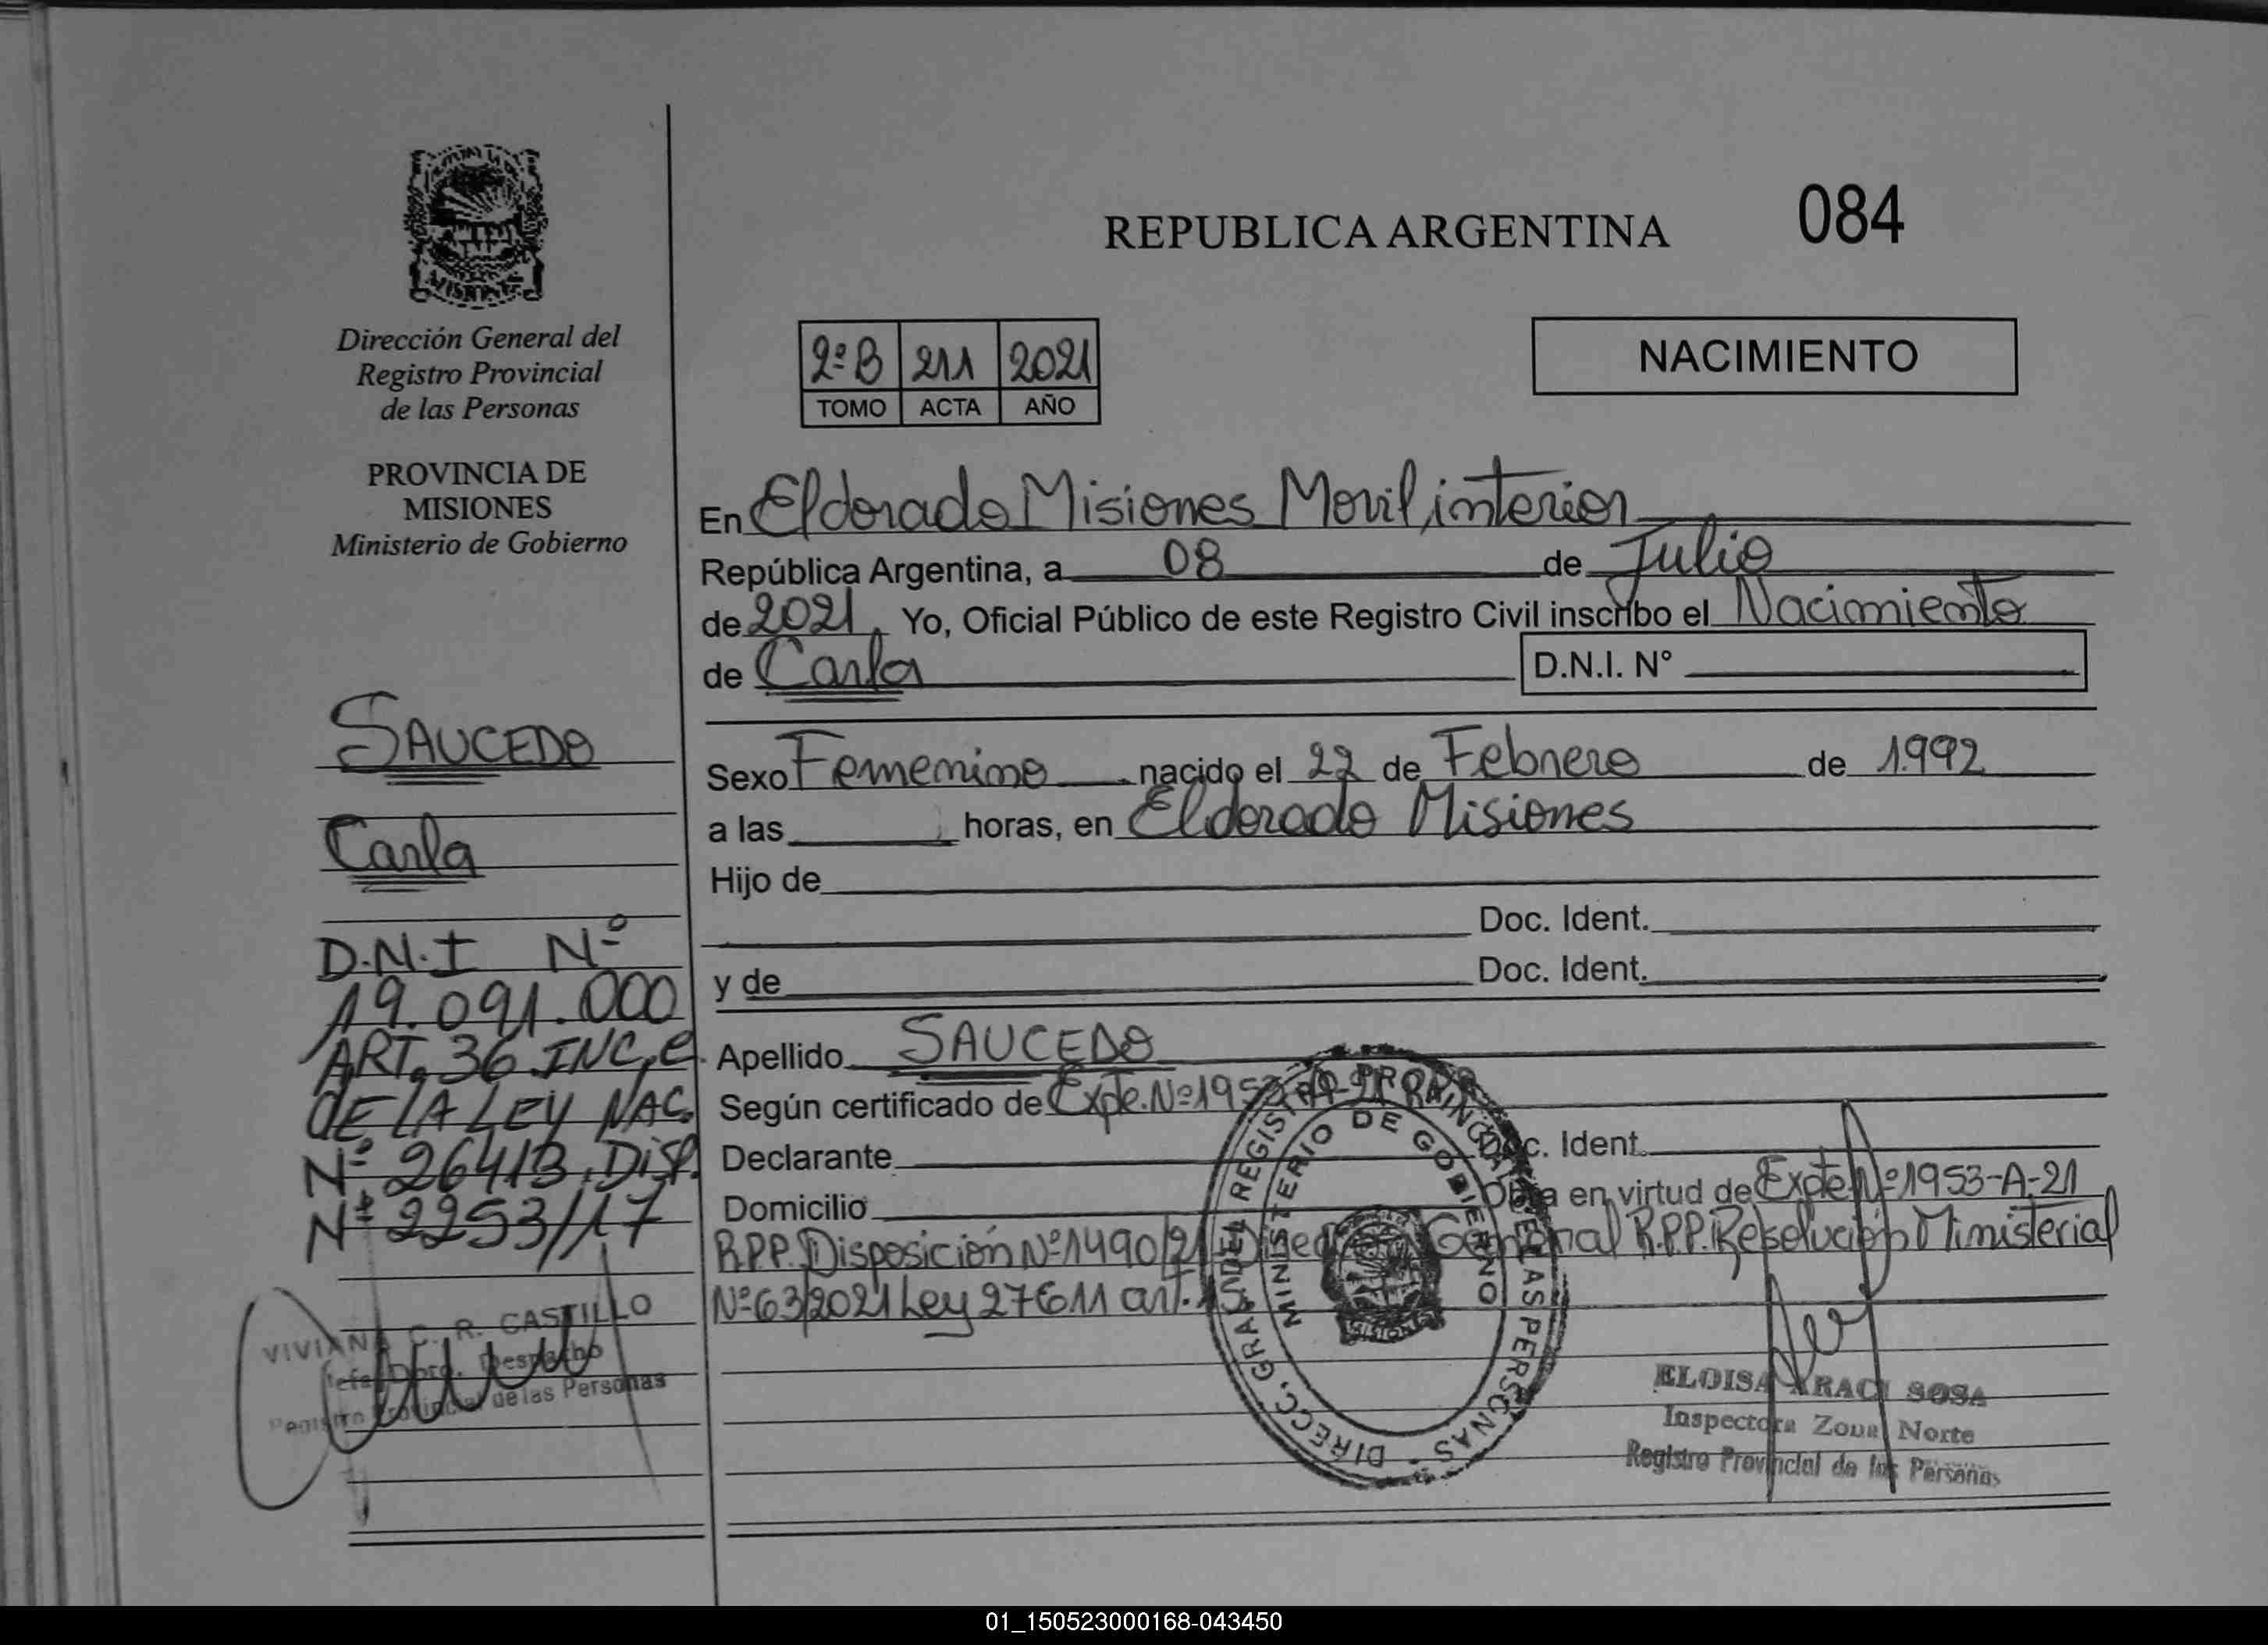 REPUBLICA ARGENTINA
084
MISIONES
Dirección General del
Registro Provincial
de las Personas
PROVINCIA DE
MISIONES
Ministerio de Gobierno
2º B 211 2021
TOMO ACTA AÑO
NACIMIENTO
En Eldorado Misiones Movil interior
República Argentina, a 08 de Julio
de 2021, Yo, Oficial Público de este Registro Civil inscribo el Nacimiento
de Carla D.N.I. N°
Sexo Femenino nacido el 22 de Febrero de 1992
a las horas, en Eldorado Misiones
Hijo de
Doc. Ident.
y de Doc. Ident.
Apellido SAUCEDO
Según certificado de Expte. Nº 1953-A-21 R.P.P.
Declarante Doc. Ident.
Domicilio Obra en virtud de Expte Nº 1953-A-21
R.P.P. Disposición Nº 1490/21 General R.P.P. Resolución Ministerial
Nº 63/2021 Ley 27611 art.
SAUCEDO
Carla
D.N.I Nº
19.091.000
ART. 36 INC, e
DE LA LEY NAC.
Nº 26413, DISP.
Nº 2253/17
VIVIANA C. R. CASTILLO
Jefa Dpto. Despacho
Registro Provincial de las Personas
DIRECC. GRAL. DEL REGISTRO PROVINCIAL DE LAS PERSONAS
MINISTERIO DE GOBIERNO
MISIONES
ELOISA ARACI SOSA
Inspectora Zona Norte
Registro Provincial de las Personas
01_150523000168-043450